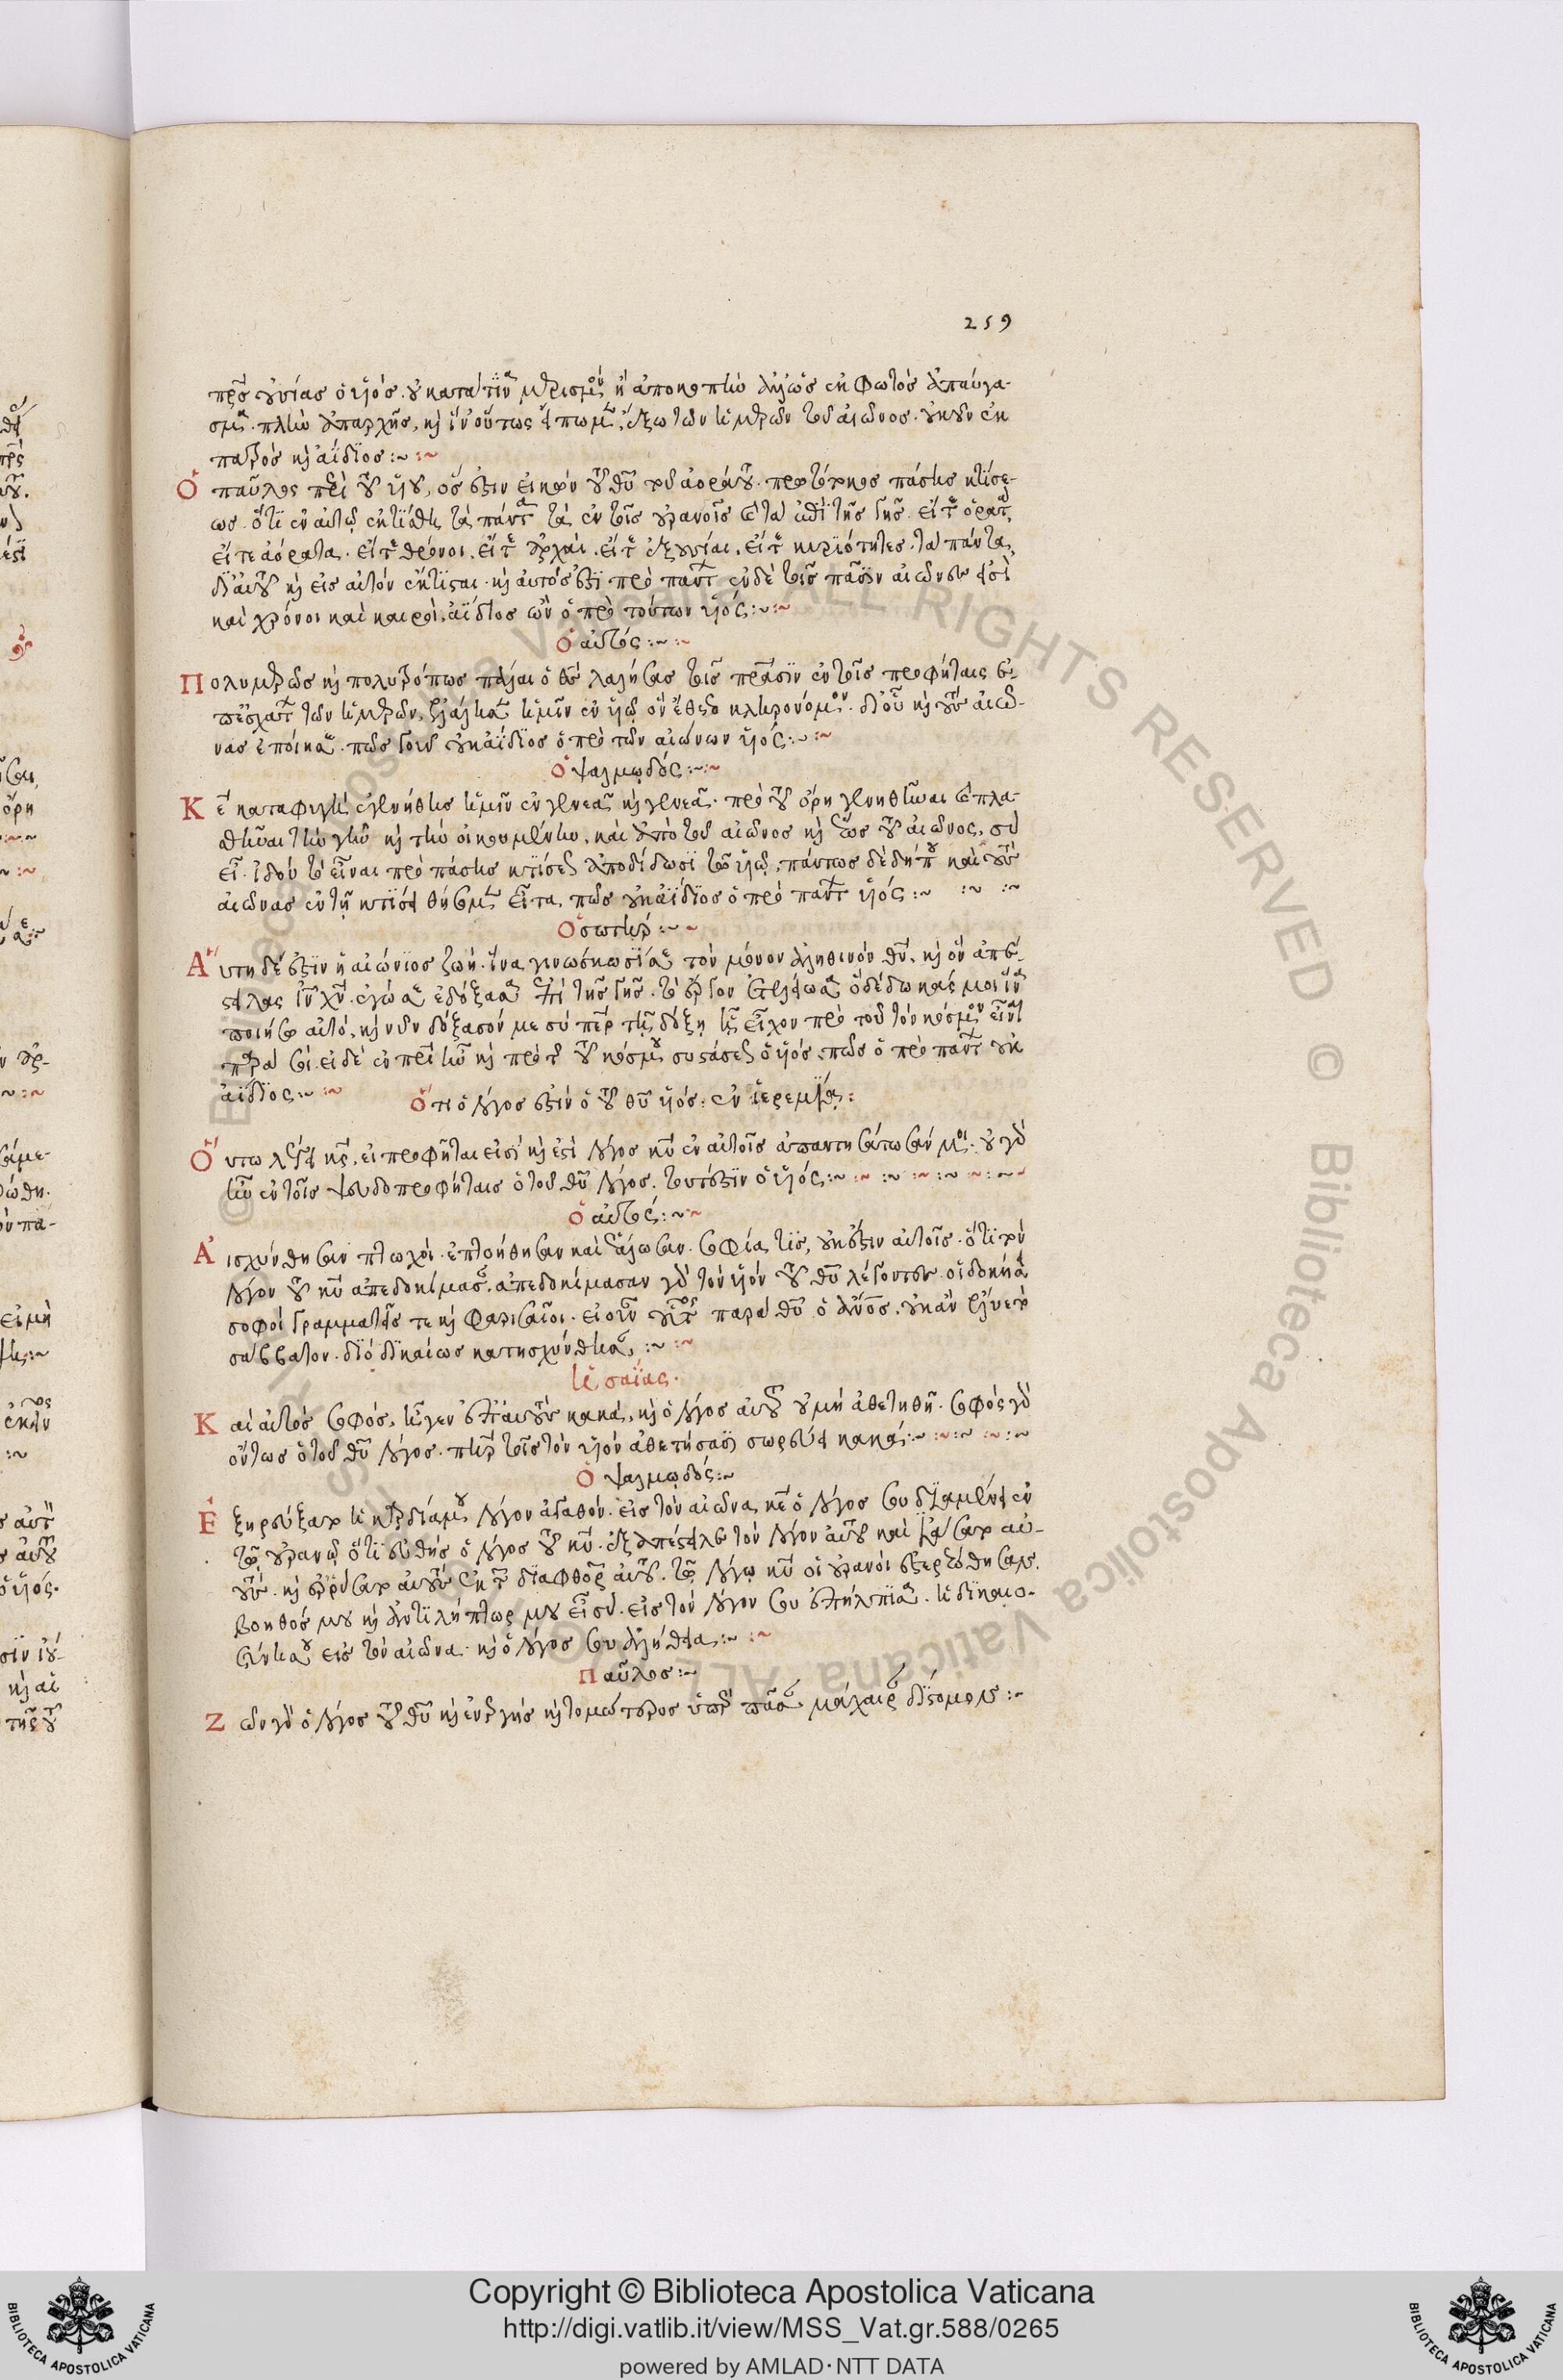 259
πρς οὐσίας ὁ υἱός. οὐ κατὰ τινα μερισμὸν ἢ ἀποκοπὴν ἀλλ' ὡς ἐκ φωτὸς ἀπαύγα-
σμα. πλὴν ἀπαρχῆς, καὶ ἵν' οὕτως εἴπωμεν, ἔξω τῶν ἡμερῶν τοῦ αἰῶνος. οὐκοῦν ἐκ
πατρὸς καὶ ἀΐδιος :~ :~
Ὁ παῦλος περὶ τοῦ υἱοῦ, ὅς ἐστιν εἰκὼν τοῦ θυ τοῦ ἀοράτου. πρωτότοκος πάσης κτίσε-
ως. ὅτι ἐν αὐτῷ ἐκτίσθη τὰ πάντα τὰ ἐν τοῖς οὐρανοῖς καὶ τὰ ἐπὶ τῆς γῆς. εἴτε ὁρατὰ,
εἴτε ἀόρατα. εἴτε θρόνοι. εἴτε ἀρχαί. εἴτε ἐξουσίαι. εἴτε κυριότητες. τὰ πάντα,
δι' αὐτοῦ καὶ εἰς αὐτὸν ἔκτισται. καὶ αὐτός ἐστι πρὸ πάντων ἐν δὲ τοῖς πᾶσιν αἰῶνες εἰσὶ
καὶ χρόνοι καὶ καιροὶ, ἀΐδιος ὢν ὁ πρὸ τούτων υἱός :~ :~
Ὁ αὐτός :~ :~
Πολυμερῶς καὶ πολυτρόπως πάλαι ὁ θς λαλήσας τοῖς πατράσιν ἐν τοῖς προφήταις ἐ-
π' ἐσχάτων τῶν ἡμερῶν, ἐλάλησεν ἡμῖν ἐν υἱῷ ὃν ἔθετο κληρονόμον. δι' οὗ καὶ τοὺς αἰῶ-
νας ἐποίησεν. πῶς γοῦν οὐκ ἀΐδιος ὁ πρὸ τῶν αἰώνων υἱός :~ :~
Ὁ ψαλμῳδός :~ :~
Κε καταφυγὴ ἐγενήθης ἡμῖν ἐν γενεᾷ καὶ γενεᾷ. πρὸ τοῦ ὄρη γενηθῆναι καὶ πλα-
σθῆναι τὴν γῆν καὶ τὴν οἰκουμένην. καὶ ἀπὸ τοῦ αἰῶνος καὶ ἕως τοῦ αἰῶνος, σὺ
εἶ. ἰδοὺ τὸ εἶναι πρὸ πάσης κτίσεως ἀποδίδωσι τῷ υἱῷ, πάντως δὲ δήπου καὶ τοὺς
αἰῶνας ἐν τῇ κτίσει θήσομεν. εἶτα, πῶς οὐκ ἀΐδιος ὁ πρὸ πάντων υἱός :~ :~ :~
Ὁ σωτήρ :~ ~
Αὕτη δέ ἐστιν ἡ αἰώνιος ζωή. ἵνα γινώσκωσί σε τὸν μόνον ἀληθινὸν θν. καὶ ὃν ἀπέ-
στειλας ιν χν. ἐγώ σε ἐδόξασα ἐπὶ τῆς γῆς. τὸ ἔργον ἐτελείωσα ὃ δέδωκάς μοι ἵνα
ποιήσω αὐτό, καὶ νῦν δόξασόν με σὺ περ τῇ δόξῃ ᾗ εἶχον πρὸ τοῦ τὸν κόσμον εἶναι
παρὰ σοί. εἰ δὲ ἐν πρι ἦν καὶ πρὸ τῆς τοῦ κόσμου συστάσεως ὁ υἱός, πῶς ὁ πρὸ πάντων οὐκ
ἀΐδιος :~ :~ Ὅτι ὁ λόγος ἐστὶν ὁ τοῦ θυ υἱός : ἐν ἱερεμίας :
Οὕτω λέγει κς. εἰ προφῆται εἰσὶ καὶ ἔστι λόγος κυ ἐν αὐτοῖς ἀπαντησάτωσάν μοι. οὐ γὰρ
ἦν ἐν τοῖς ψευδοπροφήταις ὁ τοῦ θυ λόγος. τουτέστιν ὁ υἱός :~ :~ :~ :~ :~ :~ :~
Ὁ αὐτός :~ ~
Αἰσχύνθησαν πτωχοί. ἐπτοήθησαν καὶ ἑάλωσαν. σοφία τίς, οὐκ ἔστιν αὐτοῖς. ὅτι τὸν
λόγον τοῦ κυ ἀπεδοκίμασαν. ἀπεδοκίμασαν γὰρ τὸν υἱὸν τοῦ θυ λέγοντες οἱ δοκησί-
σοφοι γραμματεῖς τε καὶ φαρισαῖοι. εἰ οὖν οὗτος παρὰ θυ ὁ ἄνος, οὐκ ἂν ἔλυε τὸ
σάββατον. διὸ δικαίως κατησχύνθησαν, :~ :~
Ἡσαΐας.
Καὶ αὐτὸς σοφός, ἦγεν ἐπ' αὐτοὺς κακά, καὶ ὁ λόγος αὐτοῦ οὐ μὴ ἀθετηθῇ. σοφὸς γὰρ
οὕτως ὁ τοῦ θυ λόγος. πικρῶς τοῖς τὸν υἱὸν ἀθετήσασι σωρεύει κακά :~ :~ :~ :~ :~
Ὁ ψαλμῳδός :~
Ἐξηρεύξατο ἡ καρδία μου λόγον ἀγαθόν. εἰς τὸν αἰῶνα κε ὁ λόγος σου διαμένει ἐν
τῷ οὐρανῷ ὅτι εὐθὴς ὁ λόγος τοῦ κυ. ἐξαπέστειλε τὸν λόγον αὐτοῦ καὶ ἰάσατο αὐ-
τούς. καὶ ἐρρύσατο αὐτοὺς ἐκ τῶν διαφθορῶν αὐτῶν. τῷ λόγῳ κυ οἱ οὐρανοὶ ἐστερεώθησαν.
βοηθός μου καὶ ἀντιλήπτωρ μου εἶ σύ. εἰς τὸν λόγον σου ἐπήλπισα. ἡ δικαιο-
σύνη σου εἰς τὸν αἰῶνα. καὶ ὁ λόγος σου ἀλήθεια :~ :~
Παῦλος :~
Ζῶν γὰρ ὁ λόγος τοῦ θυ καὶ ἐνεργὴς καὶ τομώτερος ὑπὲρ πᾶσαν μάχαιραν δίστομον :~
Copyright © Biblioteca Apostolica Vaticana
http://digi.vatlib.it/view/MSS_Vat.gr.588/0265
powered by AMLAD·NTT DATA